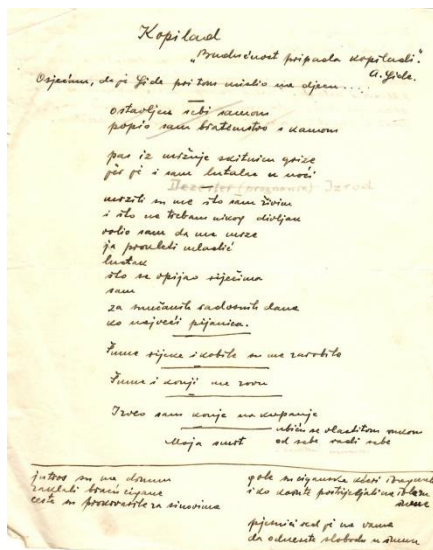 Kopilad
„Budućnost pripada kopiladi".
A. Gide.
Osjećam, da je Gide pri tom mislio na djecu ....
ostavljen sebi samom
popio sam bratimstvo s kamom
pas iz mržnje skitnicu grize
jer je i sam lutalac u noći
Dezerter (prognanik) Izrod
mrziti su me što sam živim
i što ne trebam nikog divljak
volio sam da me mrze
ja prokleti mladić
lutak
što se opijao riječima
sam
za sunčanih radosnih dana
ko najveći pijanica.
Šume rijeke i kobile su me zarobile
Šume i konji me zovu
Izveo sam konje na kupanje
ubiću se vlastitom rukom
Moja smrt od sebe radi sebe
jutros su na drumu
zaklali braću cigane
cesta su prokrvarile za sinovima
gole su ciganske kćeri
i ko košute postrijeljali na
pjesnici red je na vama
da odnesete slobodu u šumu